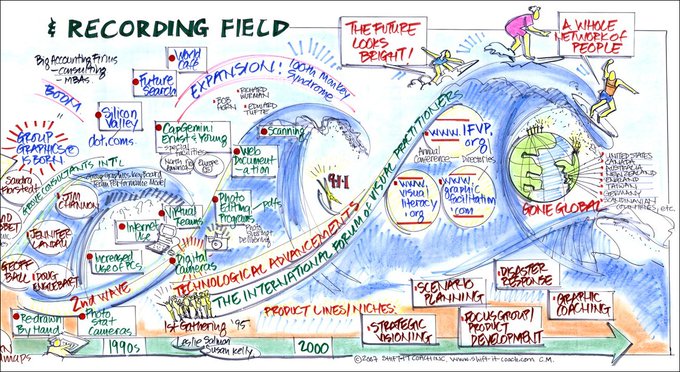 & RECORDING FIELD
Big Accounting Firms
- consulting
- MBAs.
BOOM
World Cafe
Future Search
EXPANSION:
100th Monkey Syndrome
THE FUTURE LOOKS BRIGHT!
A WHOLE NETWORK OF PEOPLE
Silicon Valley
dot.coms.
BOB HORN
RICHARD WURMAN
EDWARD TUFTE
CapGemini Ernst & Young
- special facilities
North America
Scanning
Web Documentation
GROUP GRAPHICS® IS BORN
Team Performance Model
JIM CHANNON
JENNIFER LANDAU
GEOFF BALL
DOUG ENGLEBART
Internet Use
Increased Use of PCs
Virtual Teams
Photo Editing Programs
pdfs
Digital Cameras
9-11
2nd WAVE
TECHNOLOGICAL ADVANCEMENTS
THE INTERNATIONAL FORUM of VISUAL PRACTITIONERS
www.IFVP.org
Annual Conference
Directories
www.visualliteracy.org
www.graphicfacilitation.com
GONE GLOBAL
UNITED STATES
CANADA
AUSTRALIA
NEW ZEALAND
ENGLAND
TAIWAN
GERMANY
SCANDINAVIAN COUNTRIES, etc.
Redrawn By Hand
Photo Stat Cameras
1st Gathering '95
Leslie Salmon
Susan Kelly
PRODUCT LINES/NICHES:
SCENARIO PLANNING
DISASTER RESPONSE
GRAPHIC COACHING
STRATEGIC VISIONING
FOCUS GROUP/PRODUCT DEVELOPMENT
maps
1990s
2000
©2007 SHIFT-IT COACH, INC. www.shift-it-coach.com C.M.